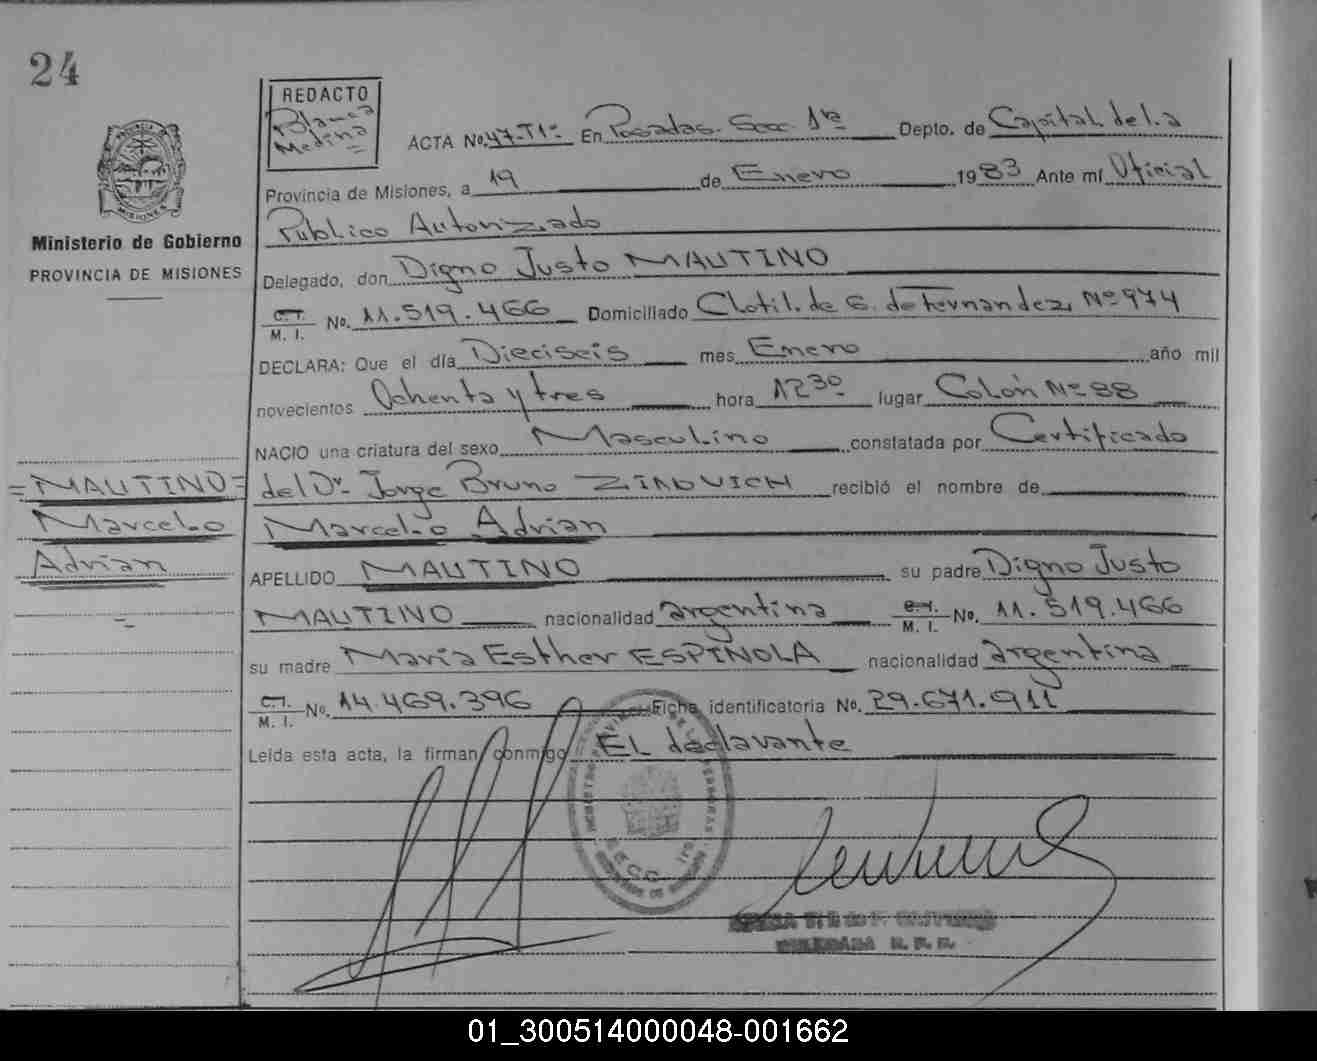 24
REDACTO
Blanca
Medina
ACTA No. 47-T1º En Posadas. Secc 1ra Depto. de Capital de la
Provincia de Misiones, a 19 de Enero 1983 Ante mí Oficial
Público Autorizado
Ministerio de Gobierno
PROVINCIA DE MISIONES
Delegado, don Digno Justo MAUTINO
C.I. M. I. No. 11.519.466 Domiciliado Clotilde G. de Fernandez Nº 974
DECLARA: Que el día Dieciseis mes Enero año mil
novecientos Ochenta y tres hora 12 30 lugar Colón Nº 88
NACIO una criatura del sexo Masculino constatada por Certificado
del Dr. Jorge Bruno recibió el nombre de
Marcelo Adrian
=MAUTINO=
Marcelo
Adrian
APELLIDO MAUTINO su padre Digno Justo
MAUTINO nacionalidad argentina C.I. M. I. No. 11.519.466
su madre María Esther ESPINOLA nacionalidad argentina
C.I. M. I. No. 14.469.396 Ficha identificatoria No. 29.671.911
Leída esta acta, la firman conmigo EL declarante
SECC 1ra
01_300514000048-001662